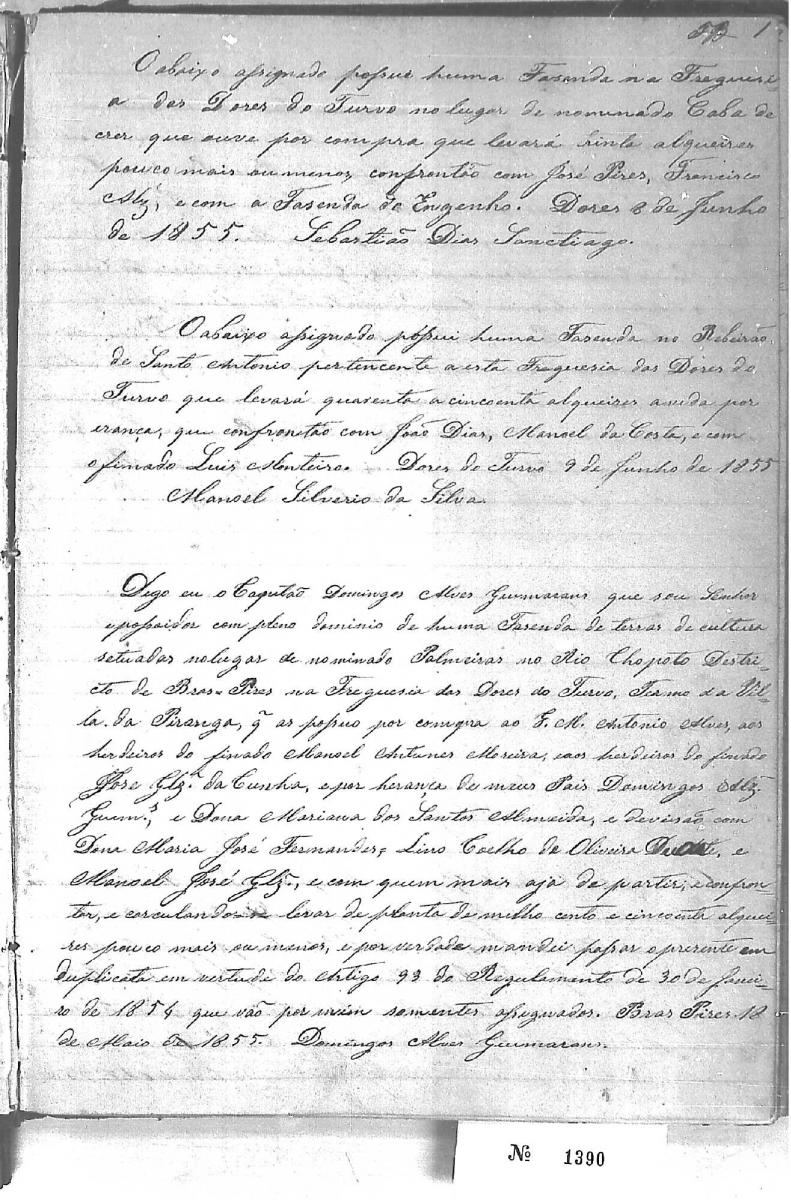 1
O abaixo assignado possue huma Fasenda na Freguesi-
a das Dores do Turvo no lugar de nominado Caba de
crer que ouve por compra que levará trinta alqueires
pouco mais ou menos, confrontão com José Pires, Francisco
Alz', e com a Fasenda do Engenho. Dores 8 de Junho
de 1855. Sebastião Dias Sanctiago.
O abaixo assignado póssui huma Fasenda no Ribeirão
de Santo Antonio pertencente a esta Freguesia das Dores do
Turvo que levará quarenta a cincoenta alqueires avida por
erança, que confrontão com João Dias, Manoel da Costa, e com
o finado Luis Monteiro. Dores do Turvo 9 de Junho de 1855
Manoel Silverio da Silva.
Digo eu o Capitão Domingos Alves Guimaraens que sou Senhor
e possuidor com pleno dominio de huma Fasenda de terras de cultura
setuadas no lugar de nominado Palmeiras no Rio Chopoto Destri-
cto de Bras Pires na Freguesia das Dores do Turvo, Termo da Vil-
la da Piranga, q as possuo por compra ao Antonio Alves, aos
herdeiros do finado Manoel Antunes Moreira, eaos herdeiros do finado
José Glz.ª da Cunha, e por herança de meus Pais Domingos Alz.
Guim.s, e Dona Mariana dos Santos Almeida, e devisão com
Dona Maria José Fernandes, Lino Coelho de Oliveira Duarte, e
Manoel José Glz., e com quem mais aja de partir, e confron-
tar, e carculando levar de planta de milho cento e cincoenta alquei-
res pouco mais ou menos, e por verdade mandei passar o presente em
duplicata em vertude do Artigo 93 do Regulamento de 30 de Janei-
ro de 1854 que vão por mim somentes assignados. Bras Pires 18
de Maio de 1855. Domingos Alves Guimaraens.
Nº 1390